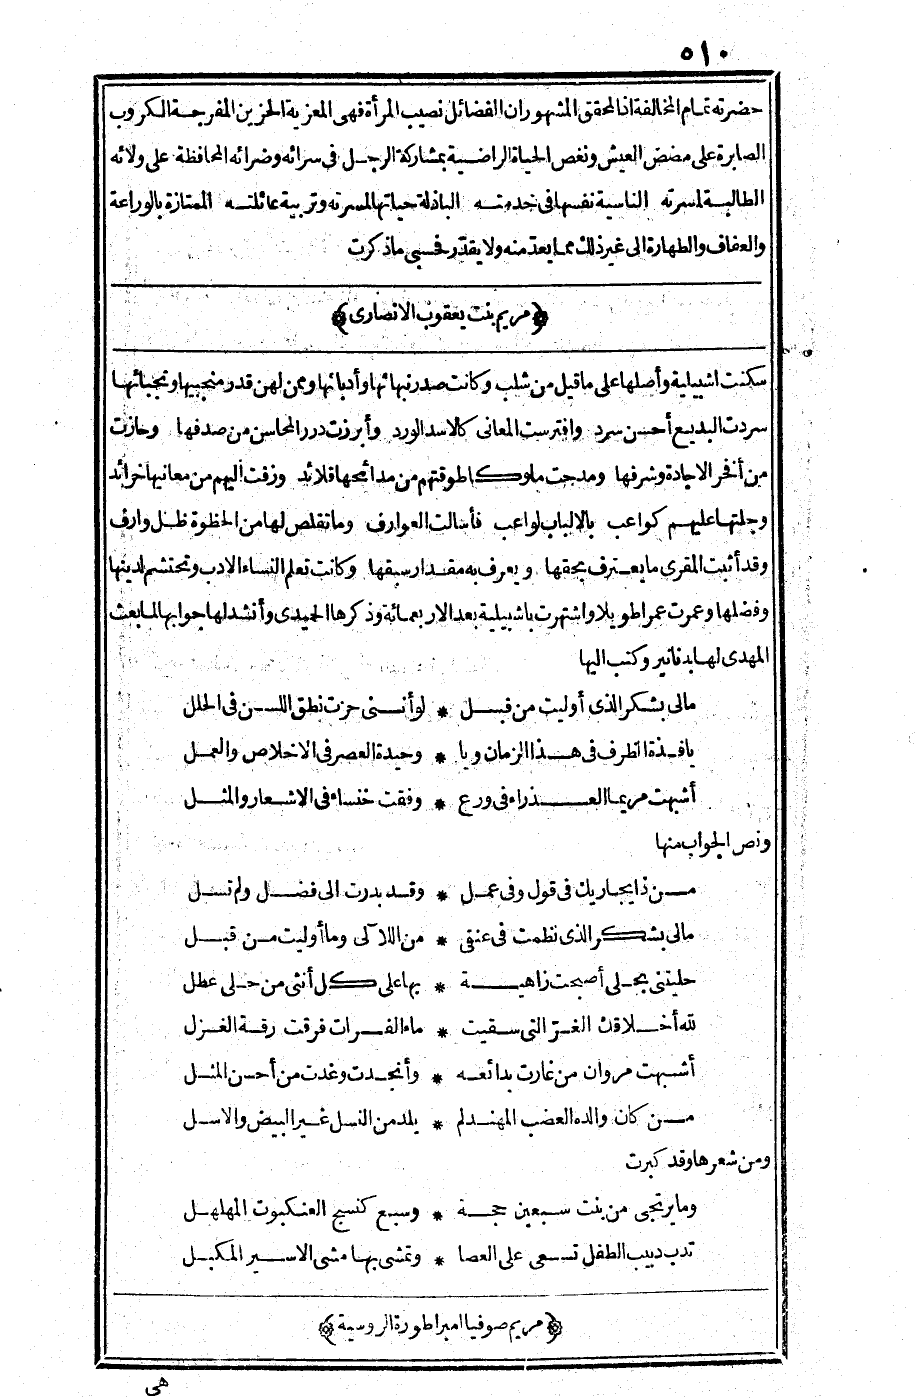 ٥١٠
حضرته تمام المخالفة اذ المحقق المشهور ان الفضائل نصيب المرأة فهى المعزية الحزين المفرجة الكروب
الصابرة على مضض العيش ونغص الحياة الراضية بمشاركة الرجل فى سرائه وضرائه المحافظة على ولائه
الطالبة لمسرته الناسية نفسها فى خدمته الباذلة حياتها لمسرته وتربية عائلته الممتازة بالوراعة
والعفاف والطهارة الى غير ذلك مما يعد منه ولا يقدّر فحسبى ما ذكرت
﴿مريم بنت يعقوب الانصارى﴾
سكنت اشبيلية وأصلها على ما قيل من شلب وكانت صدر نبهائها وأدبائها وممن لهن قدر منجبيها ونجبائها
سردت البديع أحسن سرد وافترست المعانى كالاسد الورد وأبرزت درر المحاسن من صدفها وحازت
من أنفر الاجادة وشرفها ومدحت ملوكا طوقتهم من مدائحها قلائد وزفت اليهم من معانيها خرائد
وجلتها عليهم كواعب بالالباب لواعب فأسالت العوارف وما تقلص لها من الحظوة ظل وارف
وقد أثبت المقرى ما يعترف بحقها ويعرف به مقدار سبقها وكانت تعلم النساء الادب وتحتشم لدينها
وفضلها وعمرت عمرا طويلا واشتهرت باشبيلية بعد الاربعمائة وذكرها الحميدى وأنشد لها جوابها لما بعث
المهدى لها بدنانير وكتب اليها
مالى بشكر الذى أوليت من قبل * لو أننى حزت نطق اللسن فى الحلل
يا فذة الظرف فى هذا الزمان ويا * وحيدة العصر فى الاخلاص والعمل
أشبهت مريما العذراء فى ورع * وفقت خنساء فى الاشعار والمثل
ونص الجواب منها
من ذا يجاريك فى قول وفى عمل * وقد بدرت الى فضل ولم تسل
مالى بشكر الذى نظمت فى عنقى * من اللآلى وما أوليت من قبل
حليتنى بحلى أصبحت زاهية * بها على كل أنثى من حلى عطل
لله أخلاقك الغرّ التى سقيت * ماء الفرات فرقت رقة الغزل
أشبهت مروان من غارت بدائعه * وأنجدت وغدت من أحسن المثل
من كان والده العضب المهند لم * يلد من النسل غير البيض والاسل
ومن شعرها وقد كبرت
وما يرتجى من بنت سبعين حجة * وسبع كنسج العنكبوت المهلهل
تدب دبيب الطفل تسعى على العصا * وتمشى بها مشى الاسير المكبل
﴿مريم صوفيا امبراطورة الروسية﴾
هى